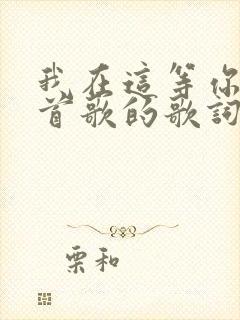 我在這等你
首歌的歌詞
栗和